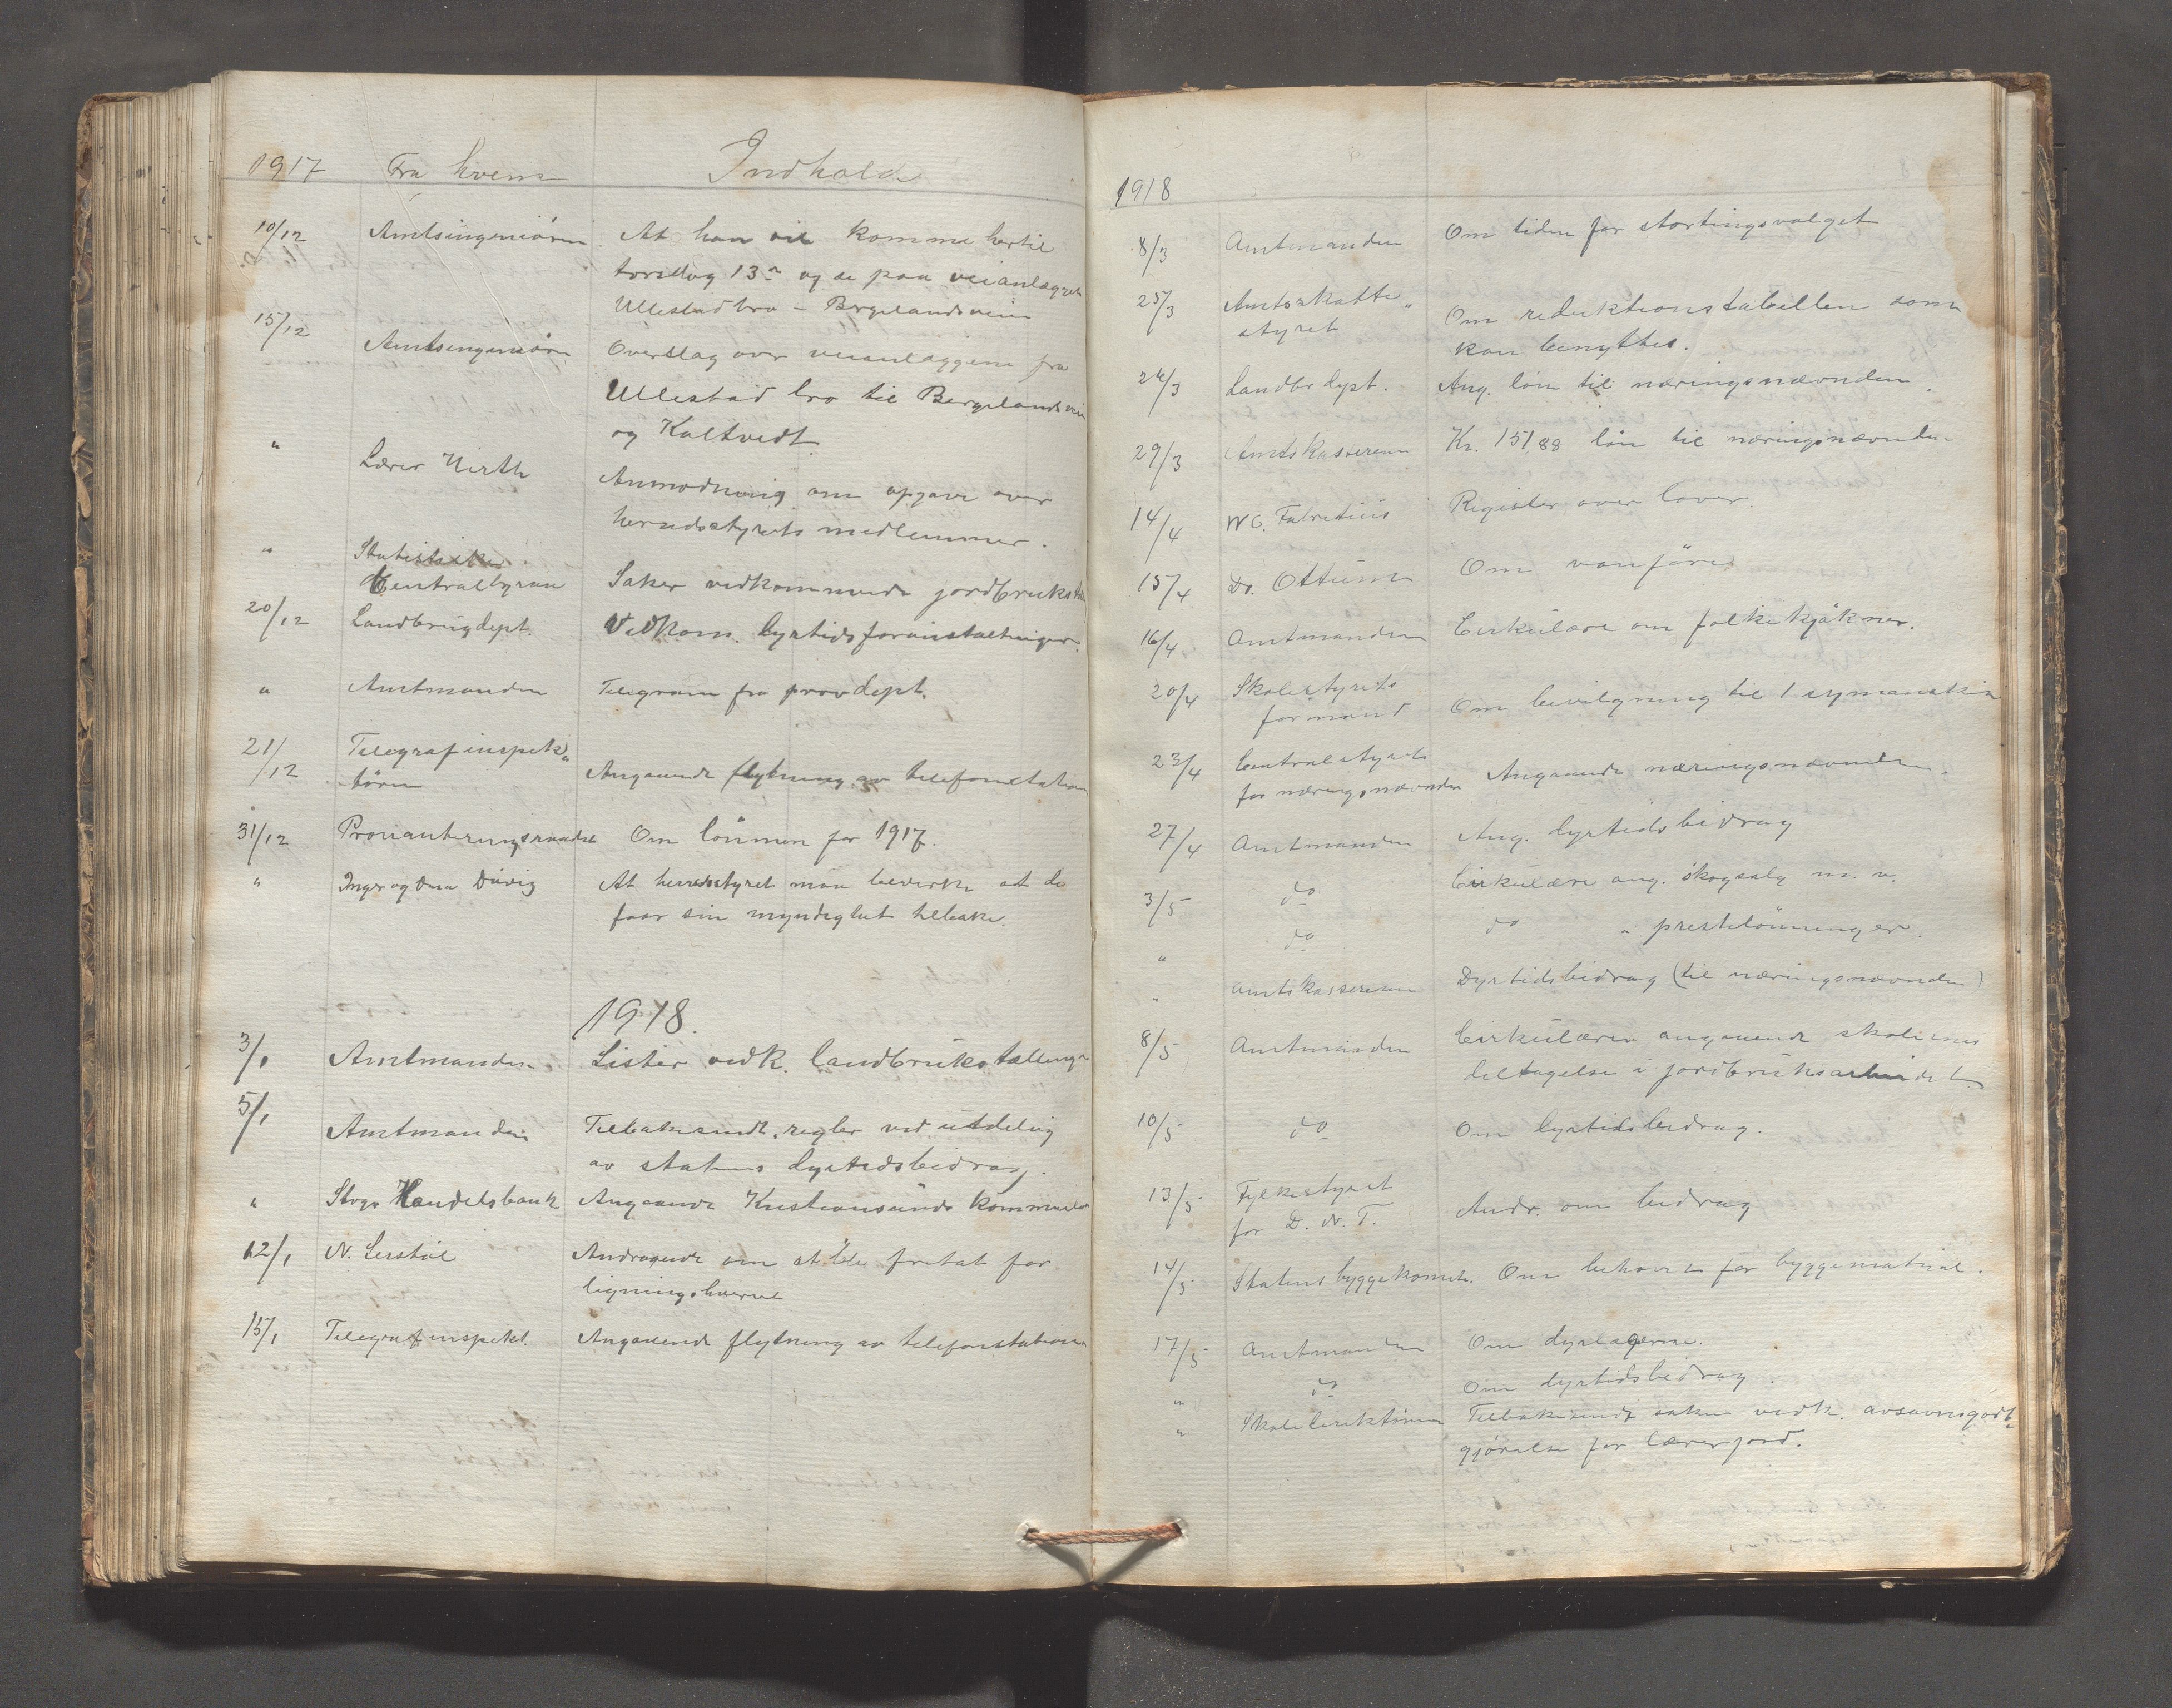 1917 Fra hvem Indhold
10/12 Amtsingeniören At han vil komme hertil
torsdag 13n og se paa veianlægget
Ullestad bro - Bergelandsveien
15/12 Amtsingeniören Overslag over veianlæggene fra
Ullestad bro til Bergelandsveien
og Kaltvedt
" Lærer Hirth Anmodning om opgave over
herredsstyrets medlemmer.
" Statistiske
Centralbyraa Saker vedkommende jordbruks
20/12 Landbrugdept. Vedkom. dyrtidsforanstaltninger.
" Amtmanden Telegram fra provdept.
21/12 Telegrafinspek"
tören Angaaende flytning av telefonstation
31/12 Provianteringsraadet Om lönnen for 1917.
" Inger og Düvig At herredsstyret maa bevirke at de
faar sin myndighet tilbake.
1918.
3/1 Amtmanden Lister vedk. landbrukstællingen
5/1 Amtmanden Tilbakesendt. regler ved utdeling
av statens dyrtidsbidrag.
" Stvgr Handelsbank Angaaende Kristiansunds kommunelaan
12/1 N. Lerstöl Andragende om at ble fritat for
ligningshvervet
15/1 Telegrafinspekt. Angaaende flytning av telefonstationen
1918
8/3 Amtmanden Om tiden for stortingsvalget
25/3 Amtsskatte"
styret Om reduktionstabellen som
kan benyttes.
26/3 Landbr dept. Ang. lön til næringsnævnden.
29/3 Amtskasseren Kr. 151,88 lön til næringsnævnden
14/4 W C. Fabritius Register over lover.
15/4 Dr. Ottesen Om vanföre
16/4 Amtmanden Cirkülære om folkekjökner.
20/4 Skolestyrets
formand Om bevilgning til 1 symaskin
23/4 Centralstyret
for næringsnævnden Angaaende næringsnævnden.
27/4 Amtmanden Ang. dyrtidsbidrag
3/5 do Cirkülære ang. skogsalg m. v.
" do do " prestelönninger.
" Amtskasseren Dyrtidsbidrag (til næringsnævnden)
8/5 Amtmanden Cirkülære angaaende skolernes
deltagelse i jordbrüksarbeidet
10/5 do Om dyrtidsbidrag.
13/5 Fylkestyret
for D. N. T. Andr. om bidrag
14/5 Statens byggekomite. Om behovet for byggemateriale.
17/5 Amtmanden Om dyrlægerne.
" do Om dyrtidsbidrag.
" Skoledirektören Tilbakesendt saken vedk. avsavnsgodt"
gjörelse for lærerjord.